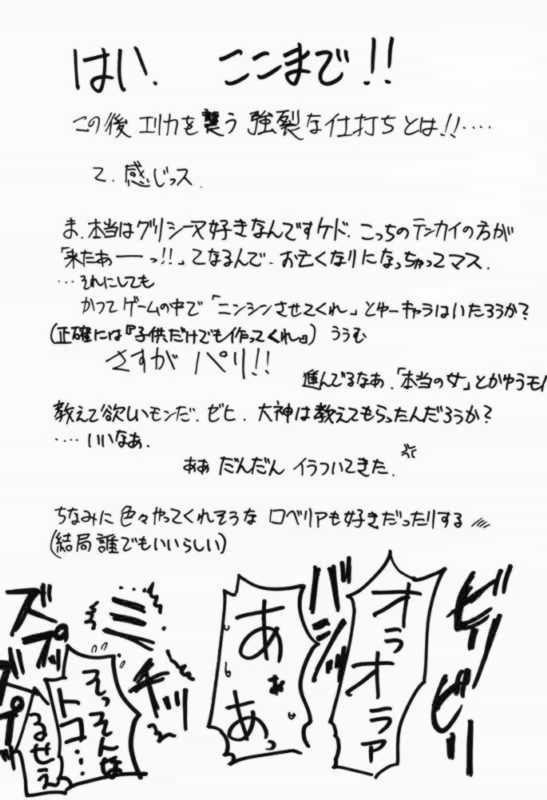 はい、ここまで!!
この後エリカを襲う強烈な仕打ちとは!!‥‥
て、感じっス、
ま、本当はグリシーヌ好きなんですケド、こっちのテンカイの方が
「来たあーっ!!」てなるんで、お亡くなりになっちゃってマス、
‥それにしても
かつてゲームの中で「ニンシンさせてくれ」とゆーキャラはいたろうか?
(正確には『子供だけでも作ってくれ』) ううむ
さすが パリ!!
進んでるなあ、「本当の女」とかゆうモノ
教えて欲しいモンだ、ゼヒ、大神は教えてもらったんだろうか?
‥‥いいなあ、
ああ だんだん イラついてきた、
ちなみに色々やってくれそうな ロベリアも好きだったりする
(結局誰でもいいらしい)
ビリ
ビリ
オラオラァ
バシ
あぁあっ
ミ
チッ
そっそんな
トコ‥
るせぇ
ズプッ
ズプッ